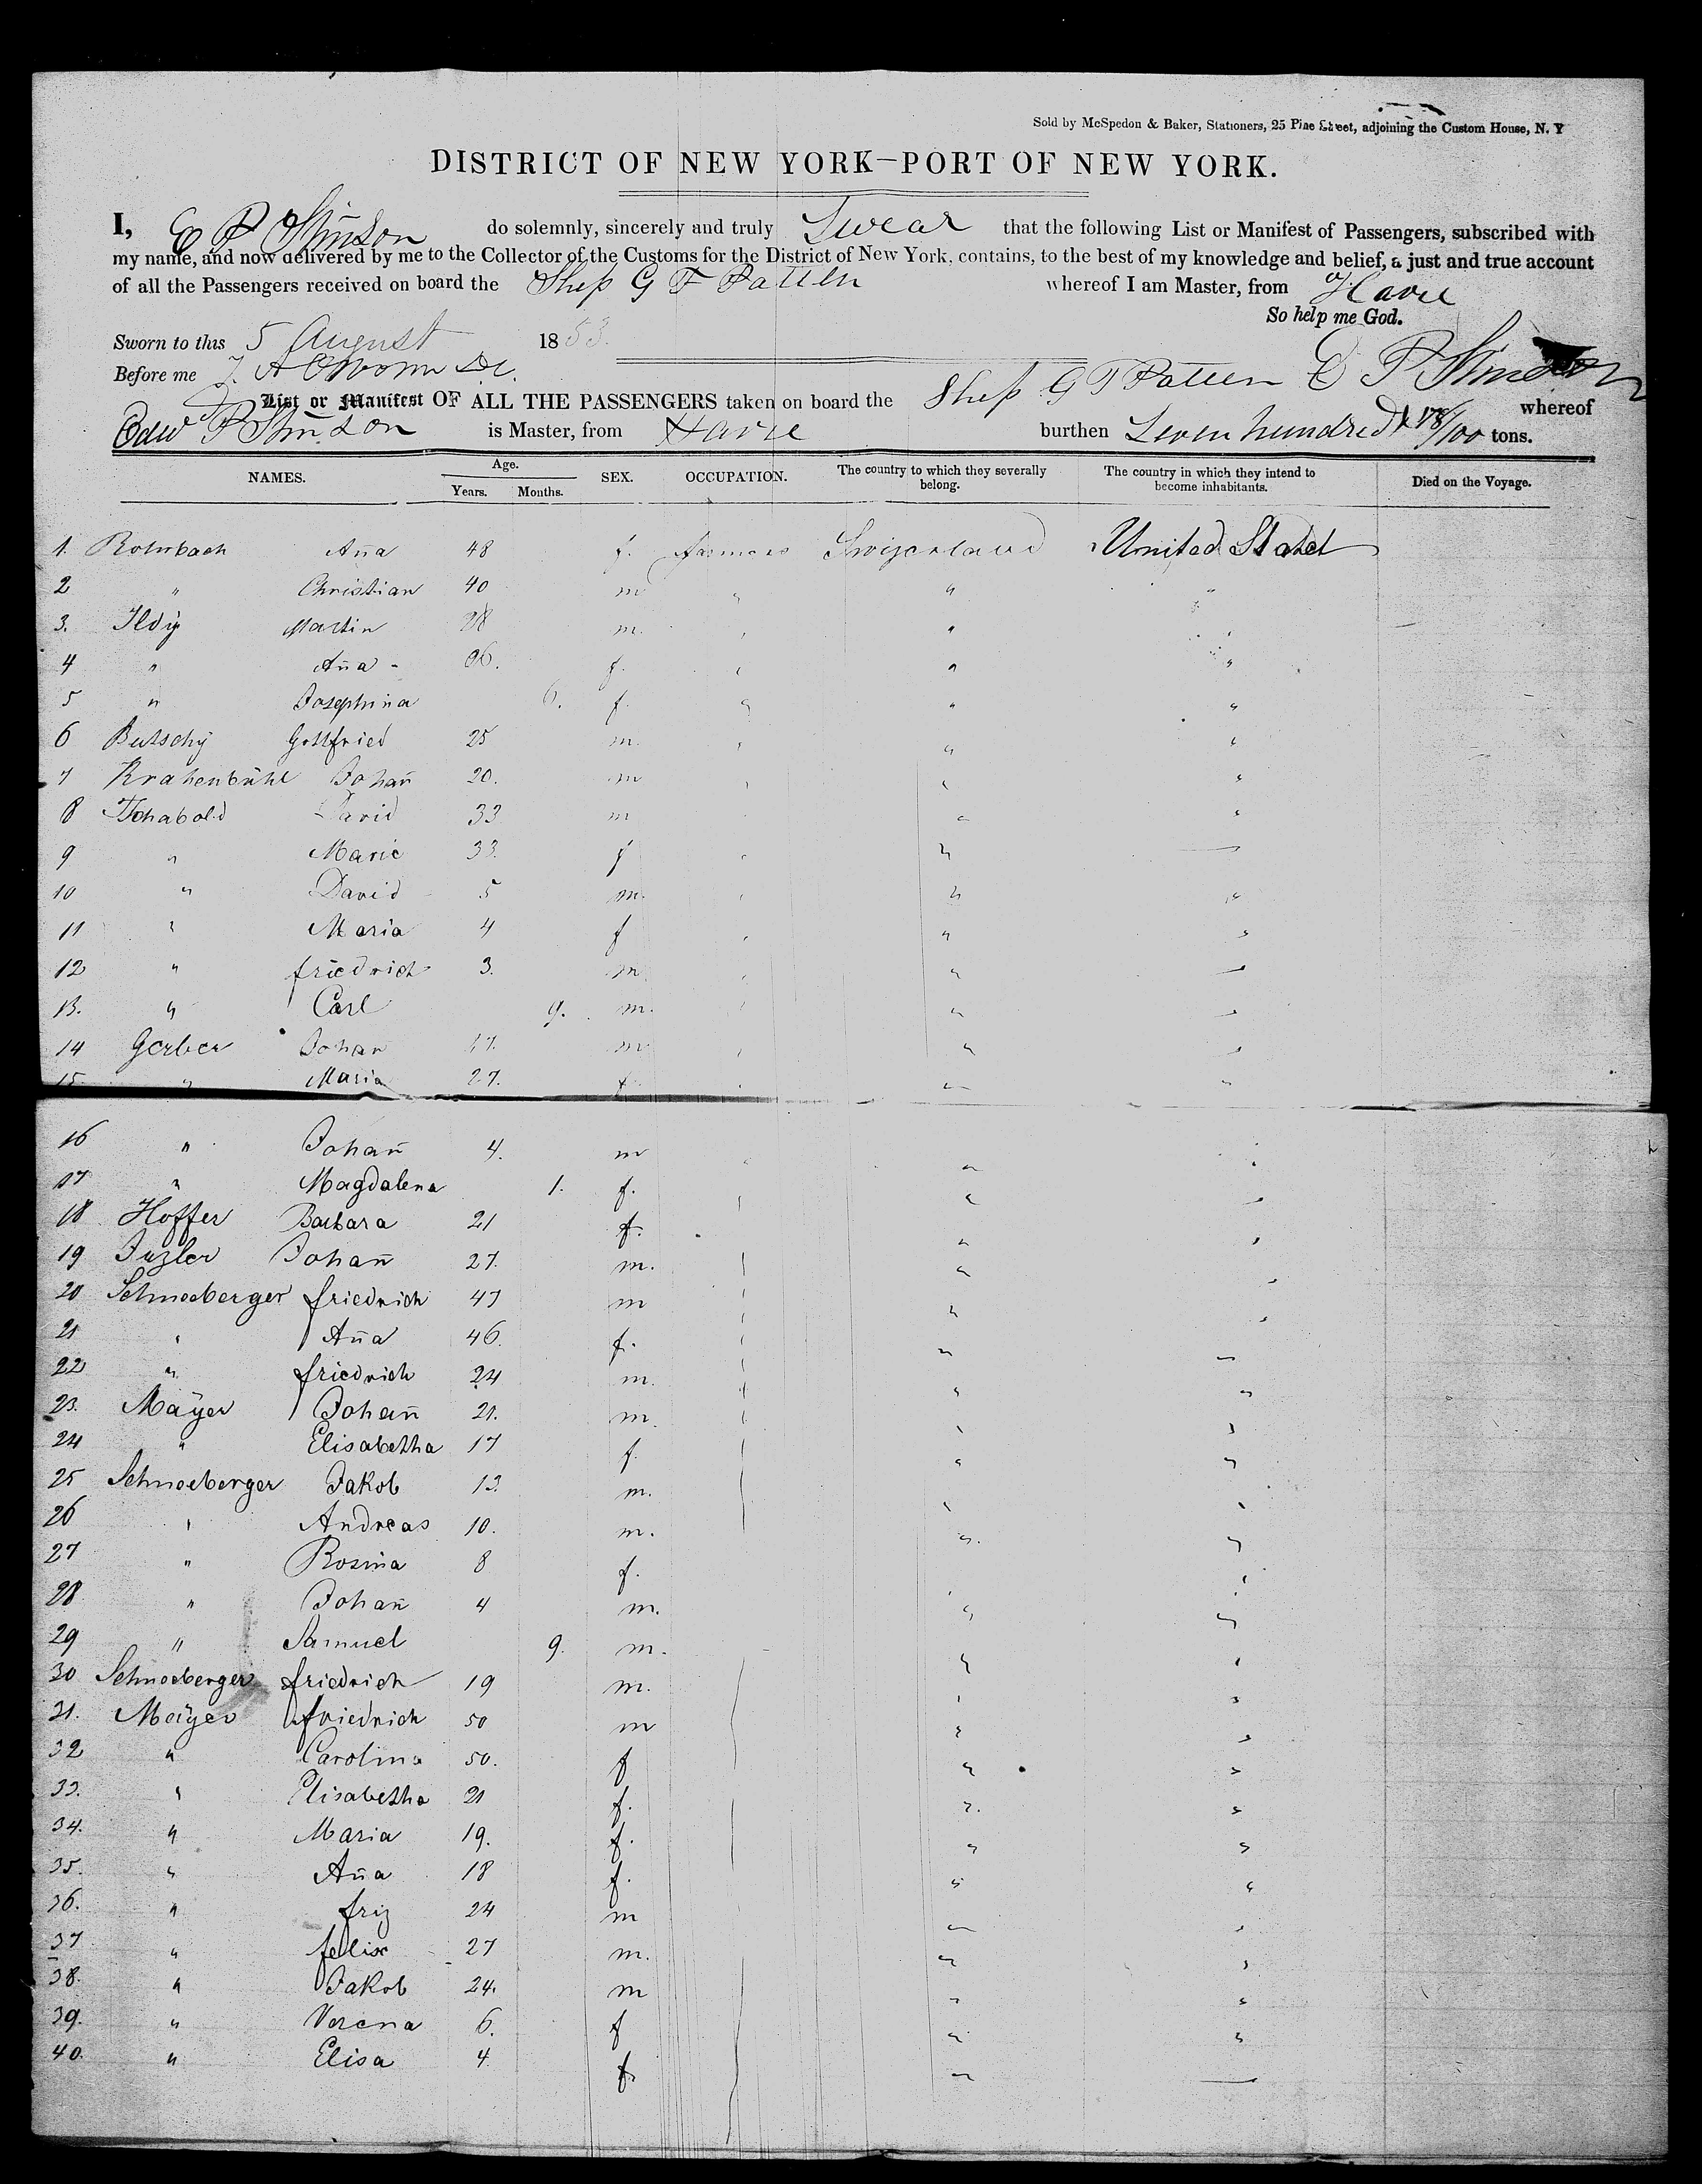 Sold by McSpedon & Baker, Stationers, 25 Pine Street, adjoining the Custom House, N. Y
DISTRICT OF NEW YORK—PORT OF NEW YORK.
I, E P Stinson do solemnly, sincerely and truly Swear that the following List or Manifest of Passengers, subscribed with
my name, and now delivered by me to the Collector of the Customs for the District of New York, contains, to the best of my knowledge and belief, a just and true account
of all the Passengers received on board the Ship G F Patten whereof I am Master, from Havre
So help me God.
Sworn to this 5 August 1853.
Before me
E P Stinson
List or Manifest OF ALL THE PASSENGERS taken on board the Ship G F Patten whereof
Edw P Stinson is Master, from Havre burthen Seven hundred & 78/100 tons.
NAMES. Age. Years. Months. SEX. OCCUPATION. The country to which they severally belong. The country in which they intend to become inhabitants. Died on the Voyage.
1. Rohrbach Aña 48 f. farmers Swizerland United States
2 " Christian 40 m " " "
3. Ildÿ Martin 28 m. " " "
4 " Aña - 26. f. " " "
5 " Josephina 6. f. " " "
6 Butschÿ Gottfried 25 m. " " "
7 Krahenbühl Johañ 20. m " " "
8 Tschabold David 33 m " " "
9 " Marie 33. f " " "
10 " David 5 m. " " "
11 " Maria 4 f " " "
12 " friedrich 3. m. " " "
13. " Carl 9. m. " " "
14 Gerber Johan 27. m " " "
15. " Maria 27. f. " " "
16 " Johañ 4. m " "
17 " Magdalena 1. f. " "
18 Hoffer Barbara 21 f. " "
19 Juzler Johañ 27. m. " "
20 Schneeberger friedrich 47 m " "
21 " Aña 46. f. " "
22 " friedrich 24 m. " "
23. Maÿer Johañ 21. m. " "
24 " Elisabetha 17 f. " "
25 Schneeberger Jakob 13. m. " "
26 " Andreas 10. m. " "
27 " Rosina 8 f. " "
28 " Johañ 4 m. " "
29 " Samuel 9. m. " "
30 Schneeberger friedrich 19 m. " "
31. Maÿer friedrich 50 m " "
32 " Carolina 50. f " "
33. " Elisabetha 21 f. " "
34. " Maria 19. f. " "
35. " Aña 18 f. " "
36. " friz 24 m " "
37 " felix 27 m. " "
38. " Jakob 24. m " "
39. " Verena 6. f " "
40. " Elisa 4 f. " "